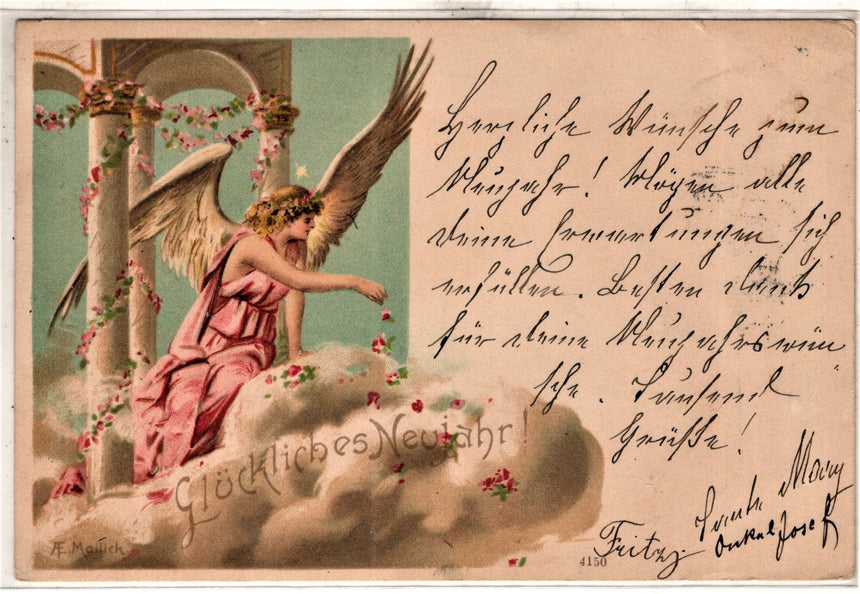 Herzliche Wünsche zum
Neujahr! Mögen alle
deine Erwartungen sich
erfüllen. Besten Dank
für deine Neujahrswün
sche. Tausend
Grüße!
Tante Mary
Onkel Josef
Fritz.
Glückliches Neujahr!
Æ. Mailick
4150